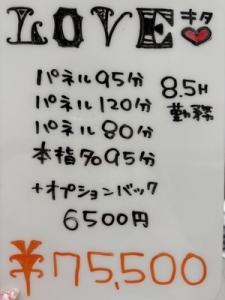 LOVE キタ
パネル95分
パネル120分
パネル80分
8.5H
勤務
本指名95分
+オプションバック
6500円
¥75,500